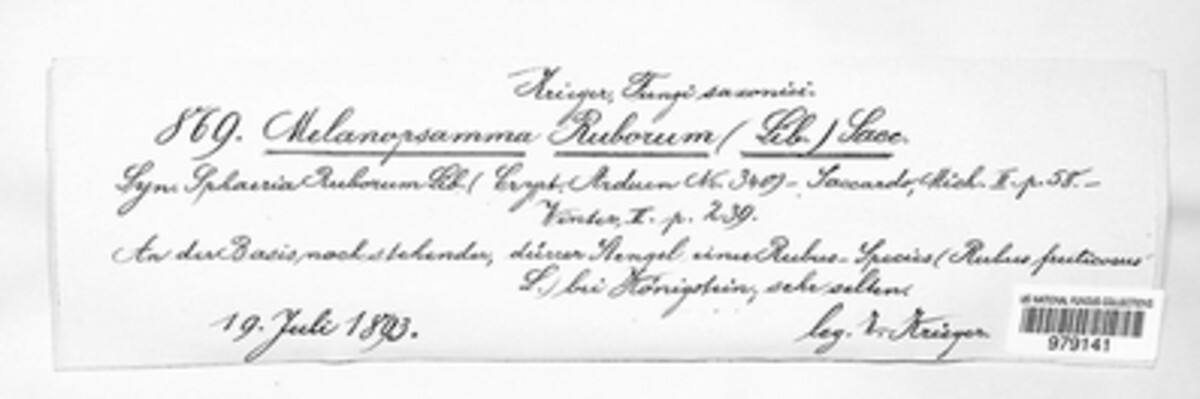 Krieger, Fungi saxonici.
869. Melanopsamma Ruborum (Lib.) Sacc.
Syn. Sphaeria Ruborum Lib. (Crypt. Arduen No. 340) - Saccardo, Mich. II. p. 58. -
Winter, II. p. 239.
An der Basis noch stehender, dürrer Stengel einer Rubus-Species (Rubus fruticosus
L.) bei Königstein, sehr selten.
19. Juli 1893.
leg. W. Krieger.
US NATIONAL FUNGUS COLLECTIONS
979141